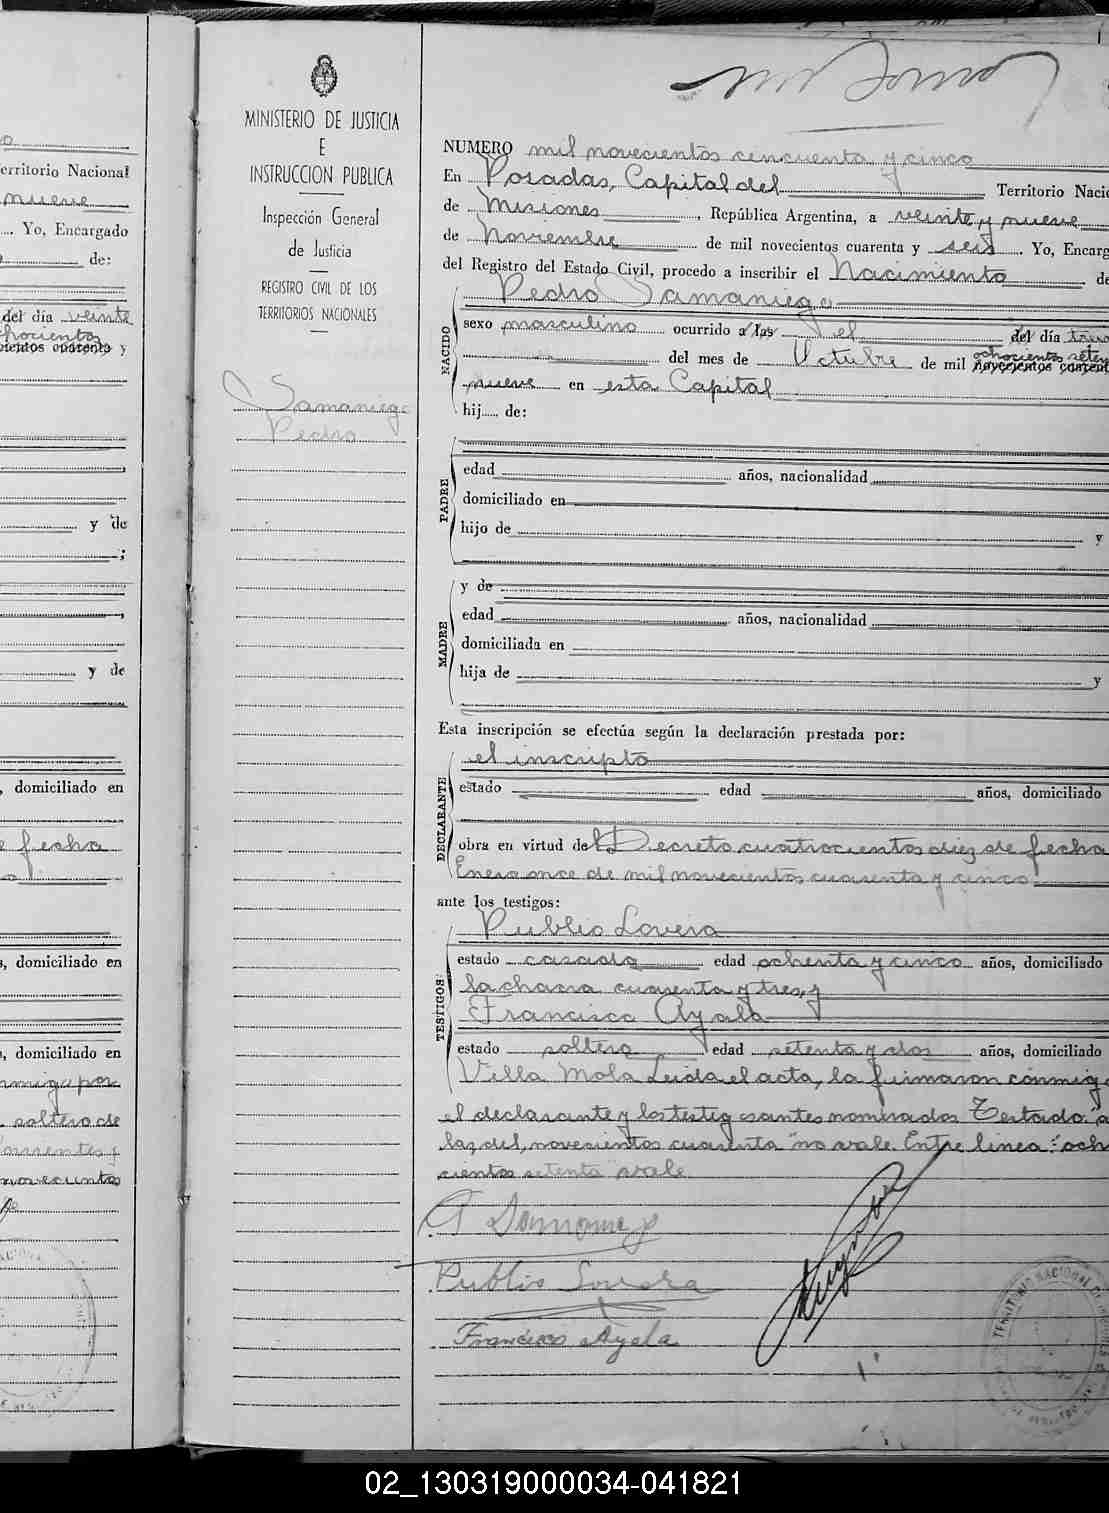 MINISTERIO DE JUSTICIA
E
INSTRUCCION PUBLICA
Inspección General
de Justicia
REGISTRO CIVIL DE LOS
TERRITORIOS NACIONALES
Samaniego
Pedro
NUMERO mil novecientos cincuenta y cinco
En Posadas, Capital del Territorio Naci
de Misiones, República Argentina, a veinte y nueve
de Noviembre de mil novecientos cuarenta y seis. Yo, Encarg
del Registro del Estado Civil, procedo a inscribir el Nacimiento de
Pedro Samaniego
NACIDO
sexo masculino ocurrido a las el del día
del mes de Octubre de mil ochocientos seten
novecientos cuarent
nueve en esta Capital
hij de:
PADRE
edad años, nacionalidad
domiciliado en
hijo de y
MADRE
y de
edad años, nacionalidad
domiciliada en
hija de y
Esta inscripción se efectúa según la declaración prestada por:
DECLARANTE
el inscripto
estado edad años, domiciliado
obra en virtud del Decreto cuatrocientos diez de fecha
Enero once de mil novecientos cuarenta y cinco
ante los testigos:
TESTIGOS
Publio Lovera
estado casado edad ochenta y cinco años, domiciliado
la chacra cuarenta y tres, y
Francisco Ayala
estado soltero edad setenta y dos años, domiciliado
Villa Mola Leida el acta, la firmaron conmigo
el declarante y los testigos antes nombrados. Testado: "a
las, del, novecientos cuarenta" no vale. Entre linea: "och
cientos setenta" vale.
Publio Lovera
Francisco Ayala
TERRITORIO NACIONAL DE
erritorio Nacional
nueve
Yo, Encargado
de:
del día veinte
ochocientos
cientos cuarenta y
y de
;
y de
, domiciliado en
fecha
, domiciliado en
, domiciliado en
nmigo por
soltero de
novecientos
02_130319000034-041821